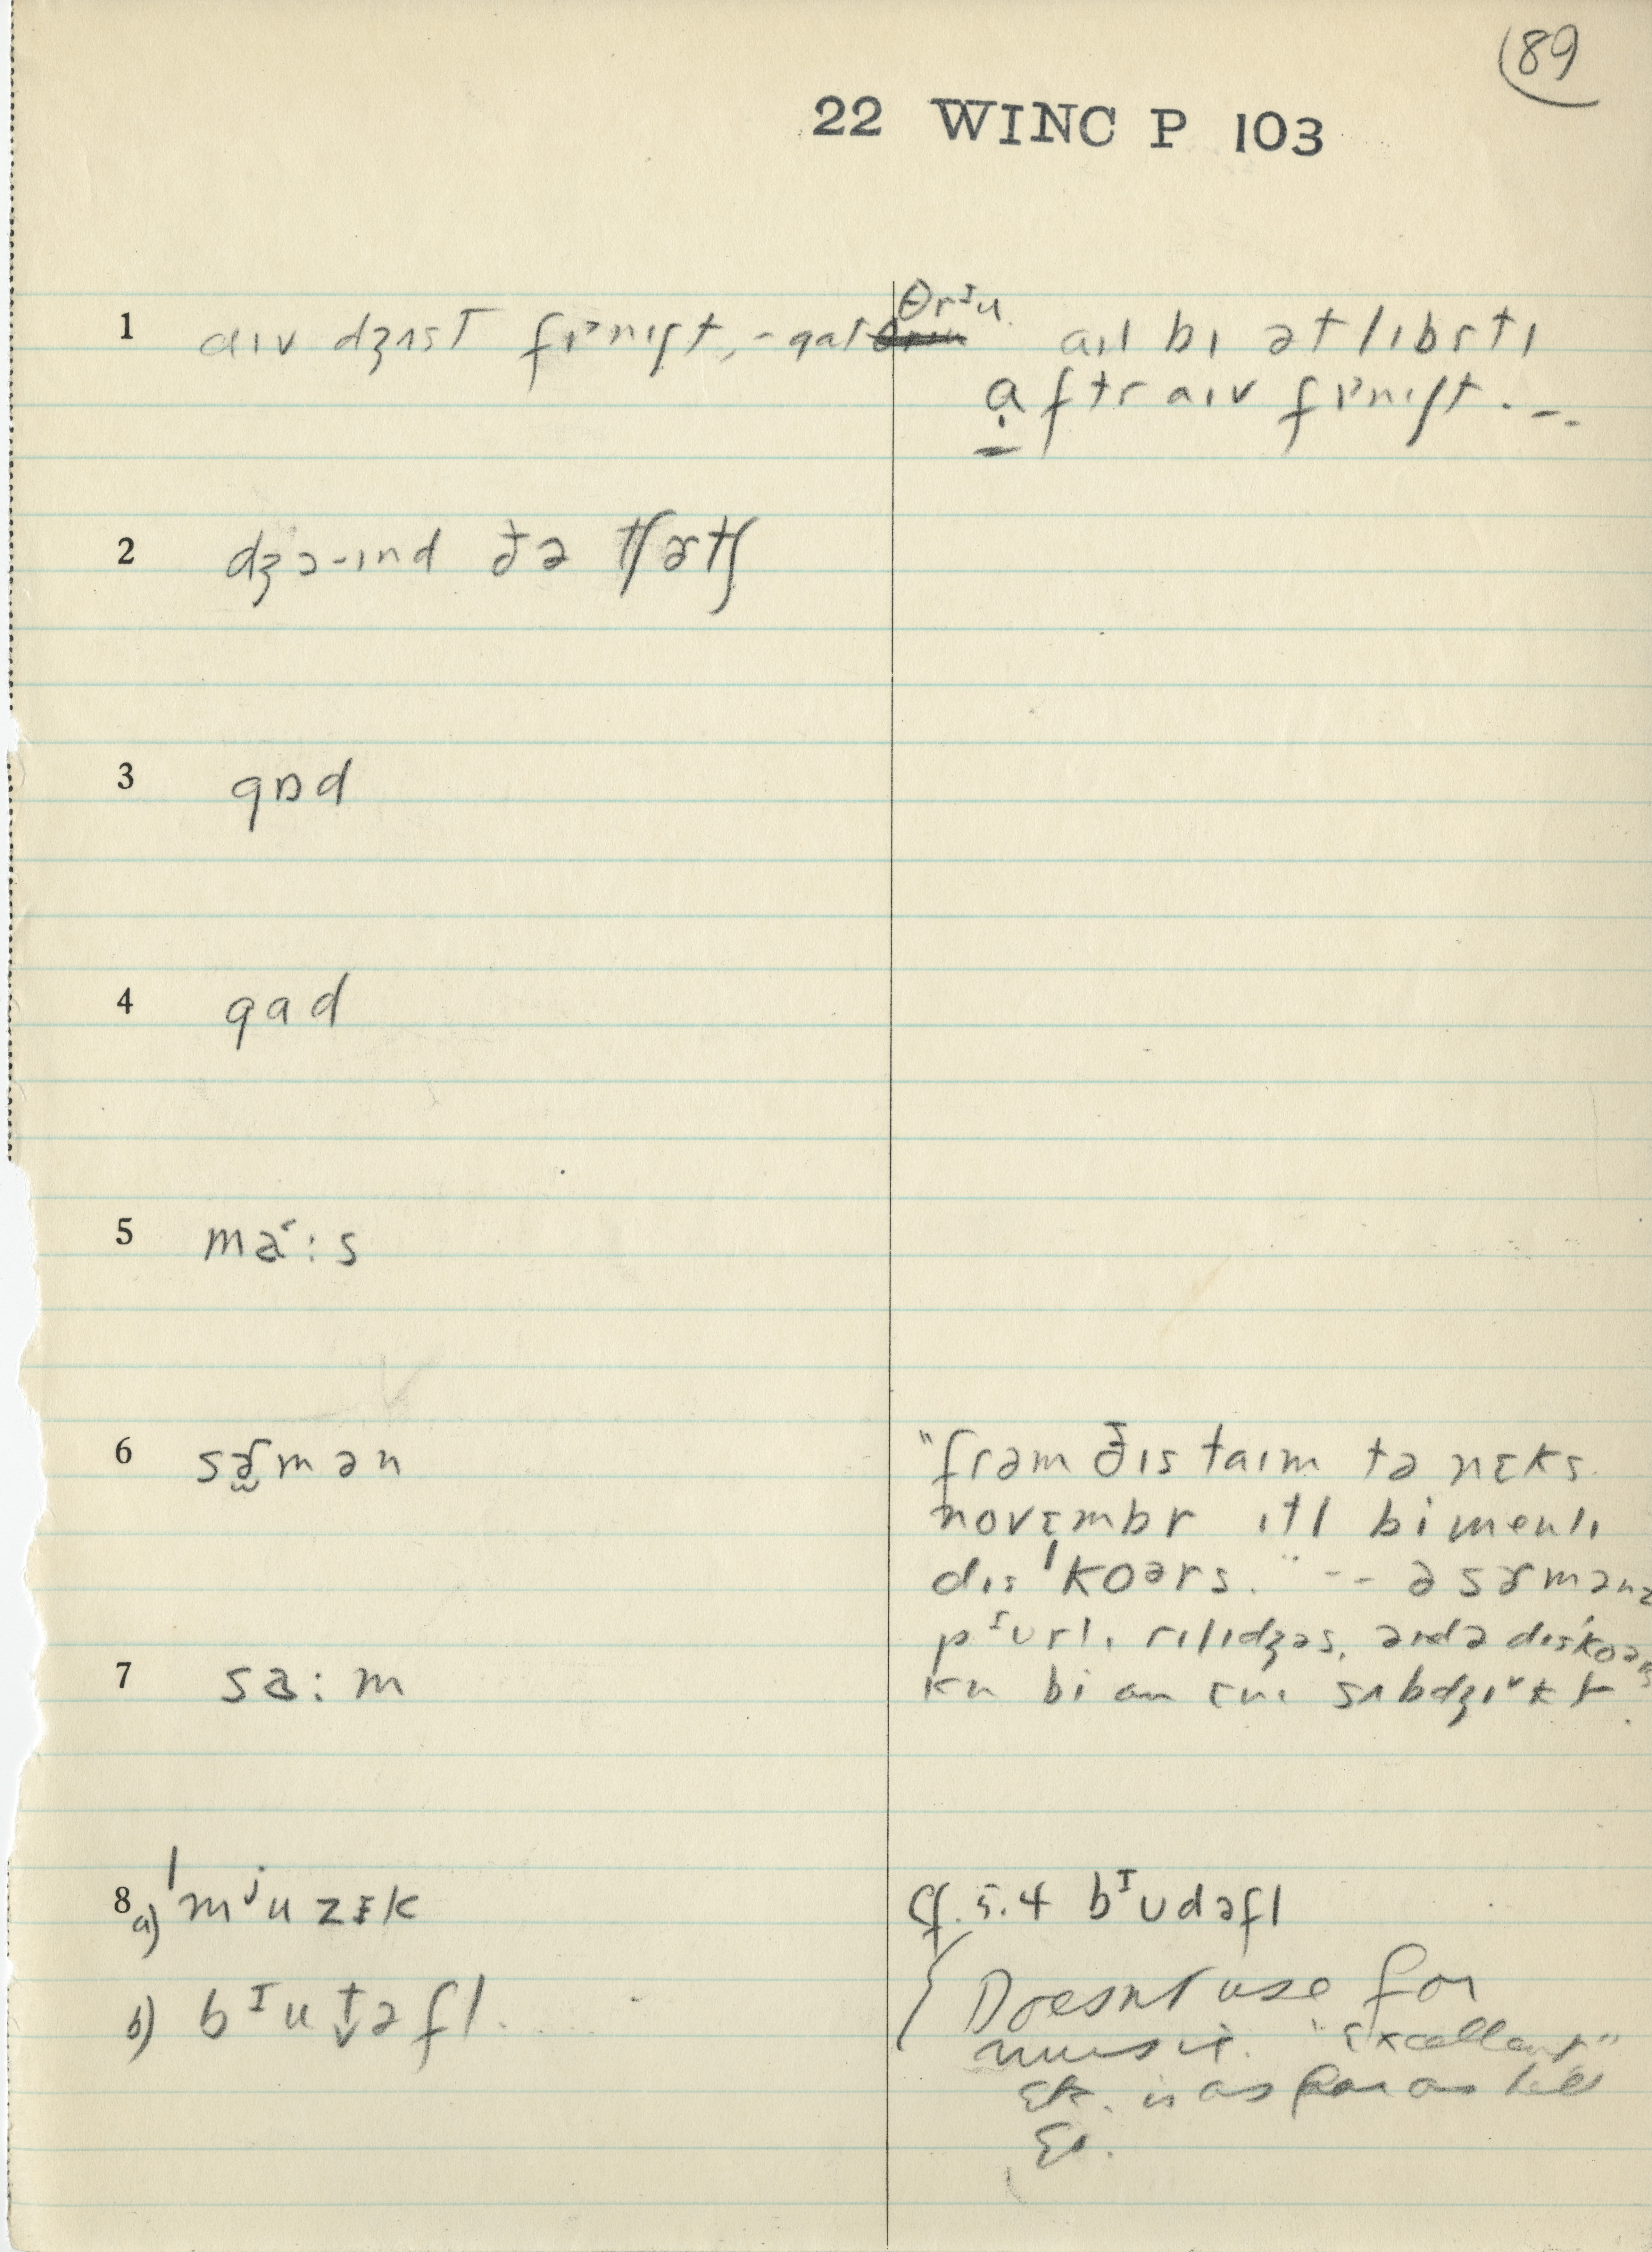 89
22 WINC P 103
1 aɪv dʒʌsт fɪnɪʃt, - gat θrᴵu aɪl bɪ ət lɪbrtɪ
aftr aɪv fɪnɪʃt. –.
2 dʒɔ-ɪnd ðə tʃɚtʃ
3 gɒd
4 gad
5 ma˂:s
6 sɚmən "frəm ðɪs taɪm tə nɛks
novɛmbr ɪtl bi menlɪ
dɪsˈkoərs." -- ə sɚmənz
pᴵurlɪ rɪlɪdʒəs,
7 sa:m kn bi an ɛnɪ sʌbdʒɪᵛkt
8 a) ˈmʲuzɪk cf. 5.4 bᴵudəfl
b) bᴵut̬əfl. Doesnt use for
music. "Excellent"
etc. is as far as he'll
go.